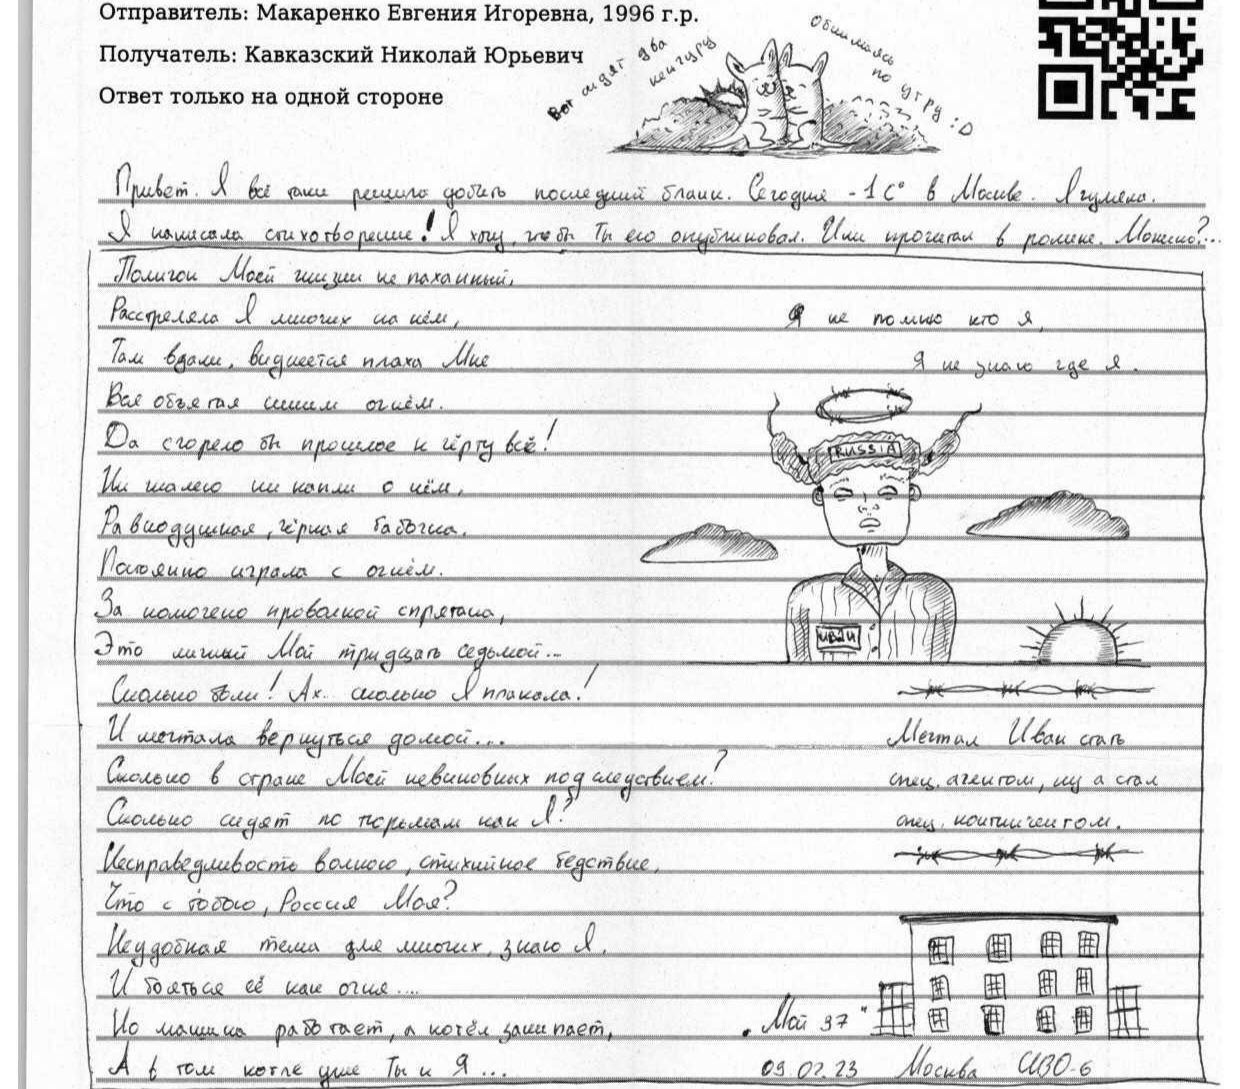 Отправитель: Макаренко Евгения Игоревна, 1996 г.р.
Получатель: Кавказский Николай Юрьевич
Ответ только на одной стороне
Вот сидят два кенгуру
Обнимаясь по утру :D
Привет. Я всё таки решила добить последний бланк. Сегодня -1 С° в Москве. Я гуляла.
Я написала стихотворение! Я хочу, чтобы Ты его опубликовал. Или прочитал в ролике. Можно?...
Полигон Моей жизни не паханный,
Расстреляла Я многих на нём,
Там вдали, виднеется плаха Мне
Вся объятая синим огнём.
Да сгорело бы прошлое к чёрту всё!
Ни жалею ни капли о нём,
Равнодушная, чёрная бабочка.
Постоянно играла с огнём.
За колючею проволкой спрятана,
Это личный Мой тридцать седьмой...
Сколько боли! Ах.. сколько Я плакала!
И мечтала вернуться домой...
Сколько в стране Моей невиновных под следствием?
Сколько сидят по тюрьмам как Я?
Несправедливость волною, стихийное бедствие,
Что с тобою, Россия Моя?
Неудобная тема для многих, знаю Я.
И бояться её как огня....
Но машина работает, а котёл закипает,
А в том котле уже Ты и Я ...
Я не помню кто я,
Я не знаю где я.
RUSSIA
ИВАН
Мечтал Иван стать
спец. агентом, ну а стал
спец. контингентом.
„Мой 37"
09.02.23 Москва СИЗО-6